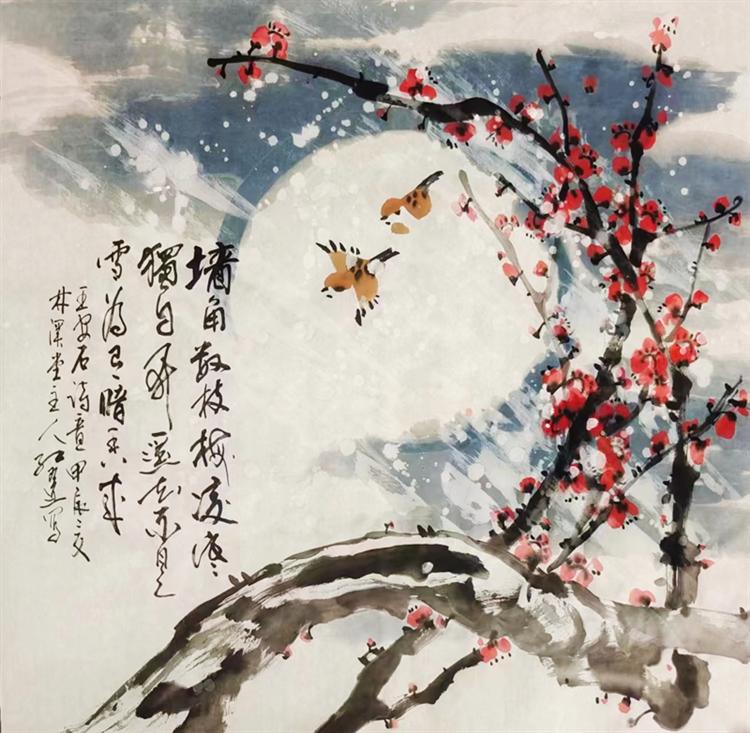 墙角数枝梅凌寒
獨自开遥知不是
雪为有暗香来
王安石诗意甲辰之夏
林溪堂主人写